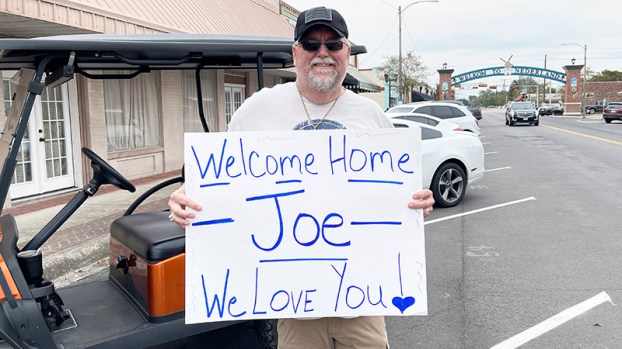 WELKOM TO NEDERLAND
Welcome Home
- Joe -
We Love You!